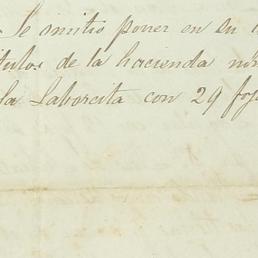 Se omitio poner en su
titulos de la hacienda
la Laborcita con 29